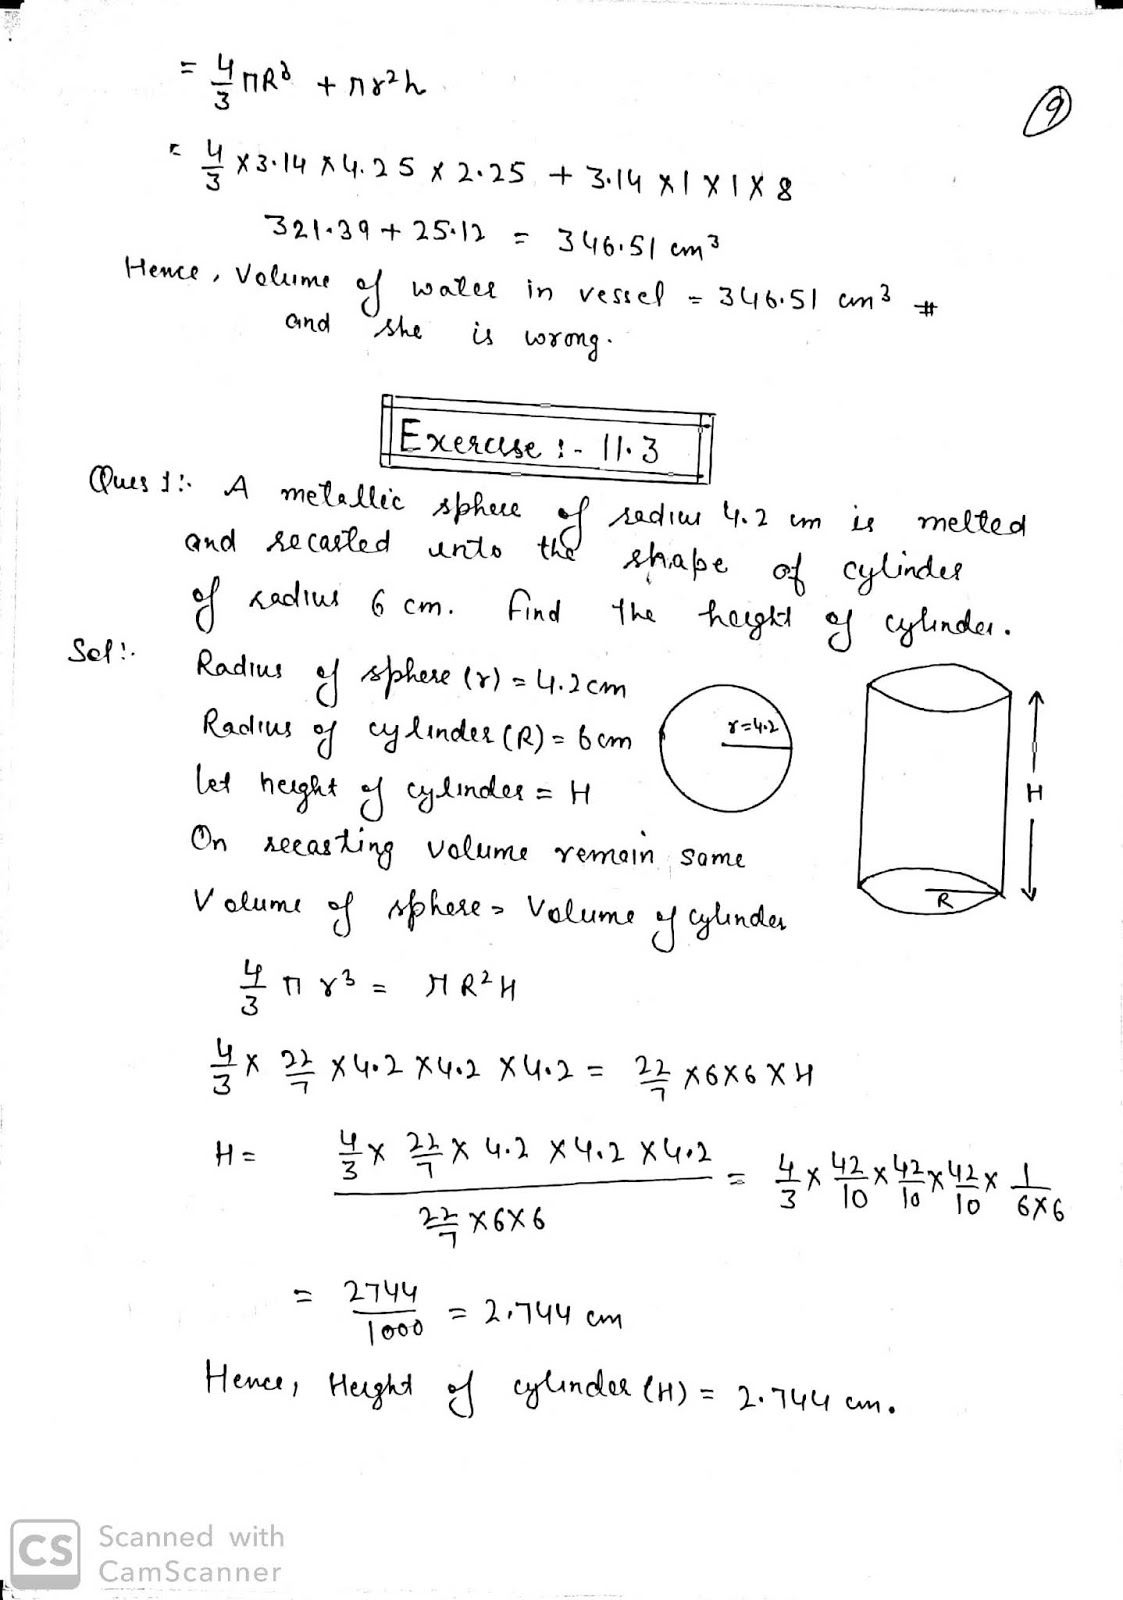 = 4/3 πR³ + πr²h
9
= 4/3 ×3.14 ×4.25 × 2.25 + 3.14 ×1 ×1× 8
321.39 + 25.12 = 346.51 cm³
Hence, Volume of water in vessel = 346.51 cm³ #
and she is wrong.
Exercise :- 11.3
Ques 1:. A metallic sphere of radius 4.2 cm is melted
and recasted into the shape of cylinder
of radius 6 cm. find the height of cylinder.
Sol:.
Radius of sphere (r) = 4.2cm
Radius of cylinder (R) = 6cm
let height of cylinder = H
On recasting volume remain same
Volume of sphere = Volume of cylinder
r=4.2
H
R
4/3 π r³ = πR²H
4/3 × 22/7 ×4.2 ×4.2 ×4.2 = 22/7 ×6×6 ×H
H = (4/3 × 22/7 × 4.2 ×4.2 ×4.2)/(22/7 ×6×6) = 4/3 × 42/10 × 42/10 × 42/10 × 1/6×6
= 2744/1000 = 2.744 cm
Hence, Height of cylinder (H) = 2.744 cm.
CS Scanned with
CamScanner